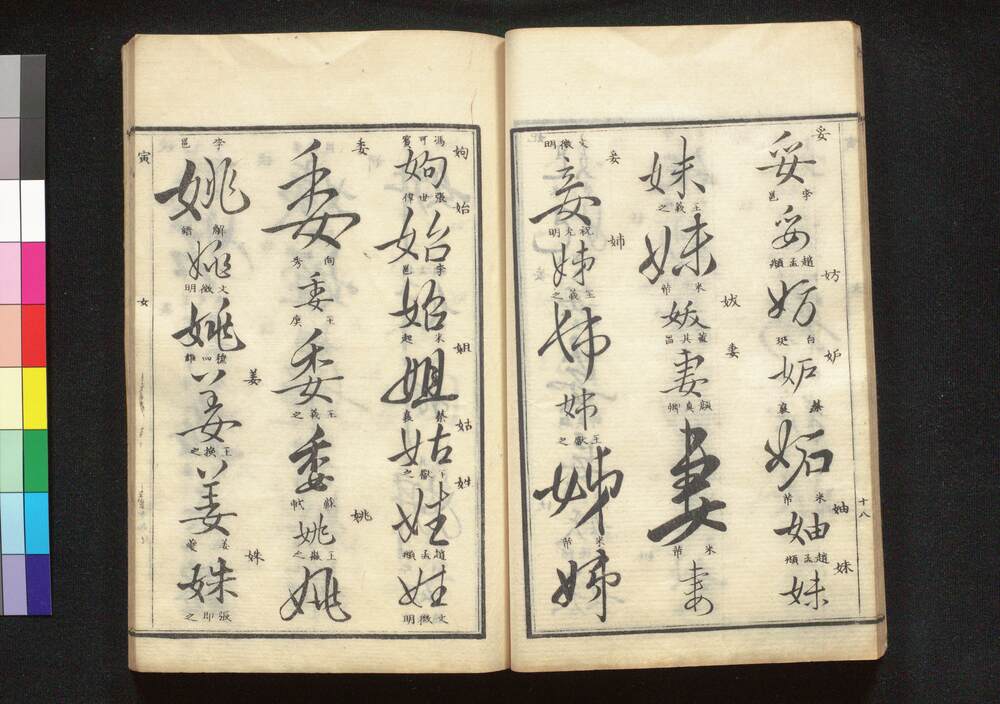 妥
妥
李邕
妥
趙孟頫
妨
妨
白玭
妒
妒
蔡襄
妬
米芾
妯
妯
趙孟頫
妹
妹
妹
王羲之
妹
米芾
妭
妭
董其昌
妻
妻
顏真卿
妻
米芾
妻
文徵明
妾
妾
祝允明
姊
姊
王羲之
姊
姊
王獻之
姊
米芾
姊
十八
馮可賓
姁
姁
張世偉
始
始
李邕
始
米
姐
姐
蔡襄
姑
姑
獻之
姓
姓
趙孟頫
姓
文徵明
委
委
向秀
委
王廙
委
王羲之
委
蘇軾
姚
姚
王獻之
姚
李邕
姚
解縉
姚
文徵明
姚
穰四雄
姜
姜
王換之
姜
姜夔
姝
姝
張即之
寅
女